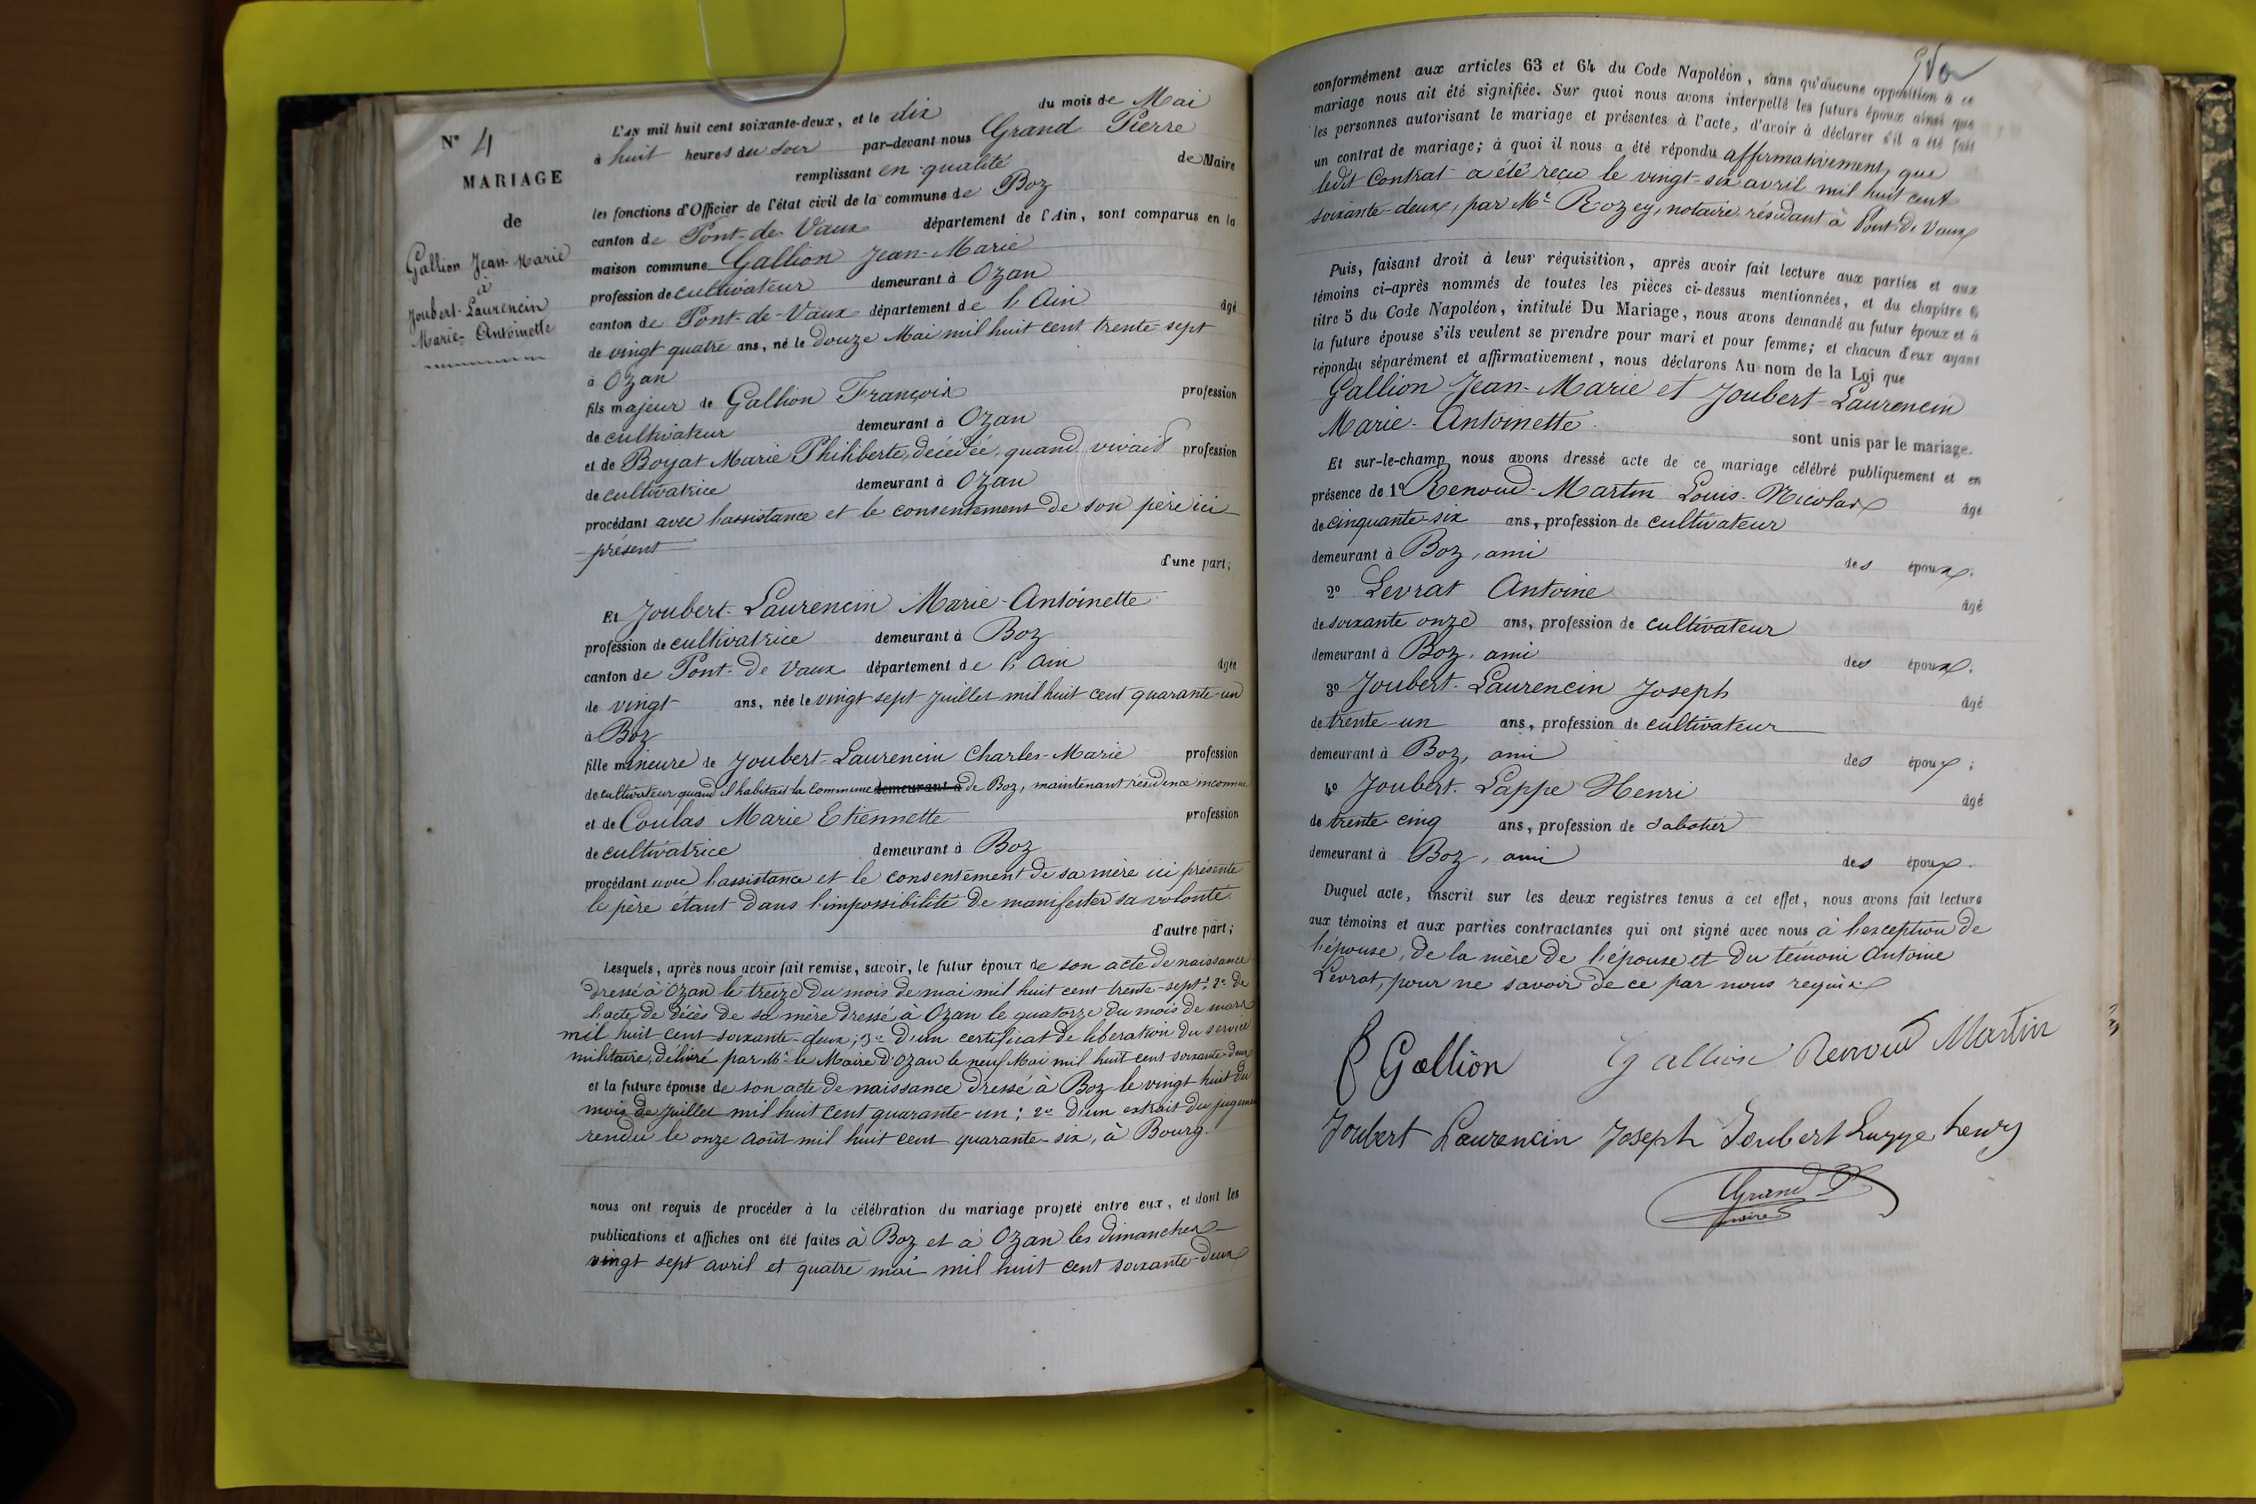 N° 4
MARIAGE
de
Gallion Jean-Marie
à
Joubert-Laurencin
Marie-Antoinette
L'AN mil huit cent soixante-deux, et le dix du mois de Mai
à huit heures du soir par-devant nous Grand Pierre
remplissant en qualité de Maire
les fonctions d'Officier de l'état civil de la commune de Boz
canton de Pont-de-Vaux département de l'Ain, sont comparus en la
maison commune Gallion Jean-Marie
profession de cultivateur demeurant à Ozan
canton de Pont-de-Vaux département de l'Ain âgé
de vingt quatre ans, né le douze Mai mil huit cent trente-sept
à Ozan
fils majeur de Gallion François profession
de cultivateur demeurant à Ozan
et de Boyat Marie Philiberte, décédée, quand vivait profession
de cultivatrice demeurant à Ozan
procédant avec l'assistance et le consentement de son père ici
présent
d'une part;
Et Joubert-Laurencin Marie-Antoinette
profession de cultivatrice demeurant à Boz
canton de Pont-de-Vaux département de l'Ain âgée
de vingt ans, née le vingt sept juillet mil huit cent quarante-un
à Boz
fille mineure de Joubert-Laurencin Charles-Marie profession
de cultivateur quand il habitait la commune demeurant à de Boz, maintenant résidence inconnue
et de Coulas Marie Etiennette profession
de cultivatrice demeurant à Boz
procédant avec l'assistance et le consentement de sa mère ici présente
le père étant dans l'impossibilité de manifester sa volonté.
d'autre part;
Lesquels, après nous avoir fait remise, savoir, le futur époux de son acte de naissance
dressé à Ozan le treize du mois de mai mil huit cent trente-sept; 2° de
l'acte de décès de sa mère dressé à Ozan le quatorze du mois de mars
mil huit cent soixante-deux; 3° d'un certificat de libération du service
militaire, délivré par Mr le Maire d'Ozan le neuf Mai mil huit cent soixante-deux
et la future épouse de son acte de naissance dressé à Boz le vingt huit du
mois de juillet mil huit cent quarante-un; 2° d'un extrait du jugement
rendu le onze août mil huit cent quarante-six, à Bourg.
nous ont requis de procéder à la célébration du mariage projeté entre eux, et dont les
publications et affiches ont été faites à Boz et à Ozan les dimanches
vingt sept avril et quatre mai mil huit cent soixante-deux
conformément aux articles 63 et 64 du Code Napoléon, sans qu'aucune opposition à ce
mariage nous ait été signifiée. Sur quoi nous avons interpellé les futurs époux ainsi que
les personnes autorisant le mariage et présentes à l'acte, d'avoir à déclarer s'il a été fait
un contrat de mariage; à quoi il nous a été répondu affirmativement, que
ledit contrat a été reçu le vingt-six avril mil huit cent
soixante-deux, par Me Rozey, notaire résidant à Pont-de-Vaux
Puis, faisant droit à leur réquisition, après avoir fait lecture aux parties et aux
témoins ci-après nommés de toutes les pièces ci-dessus mentionnées, et du chapitre 6
titre 5 du Code Napoléon, intitulé Du Mariage, nous avons demandé au futur époux et à
la future épouse s'ils veulent se prendre pour mari et pour femme; et chacun d'eux ayant
répondu séparément et affirmativement, nous déclarons Au nom de la Loi que
Gallion Jean-Marie et Joubert-Laurencin
Marie-Antoinette sont unis par le mariage.
Et sur-le-champ nous avons dressé acte de ce mariage célébré publiquement et en
présence de 1° Renoud-Martin Louis-Nicolas âgé
de cinquante-six ans, profession de cultivateur
demeurant à Boz, ami des époux.
2° Levrat Antoine âgé
de soixante onze ans, profession de cultivateur
demeurant à Boz, ami des époux.
3° Joubert-Laurencin Joseph âgé
de trente-un ans, profession de cultivateur
demeurant à Boz, ami des époux;
4° Joubert-Lappe Henri âgé
de trente cinq ans, profession de sabotier
demeurant à Boz, ami des époux.
Duquel acte, inscrit sur les deux registres tenus à cet effet, nous avons fait lecture
aux témoins et aux parties contractantes qui ont signé avec nous à l'exception de
l'épouse, de la mère de l'épouse et du témoin Antoine
Levrat, pour ne savoir de ce par nous requis
f Gallion Gallion Renoud Martin
Joubert Laurencin Joseph Joubert henry
Grand P
maire